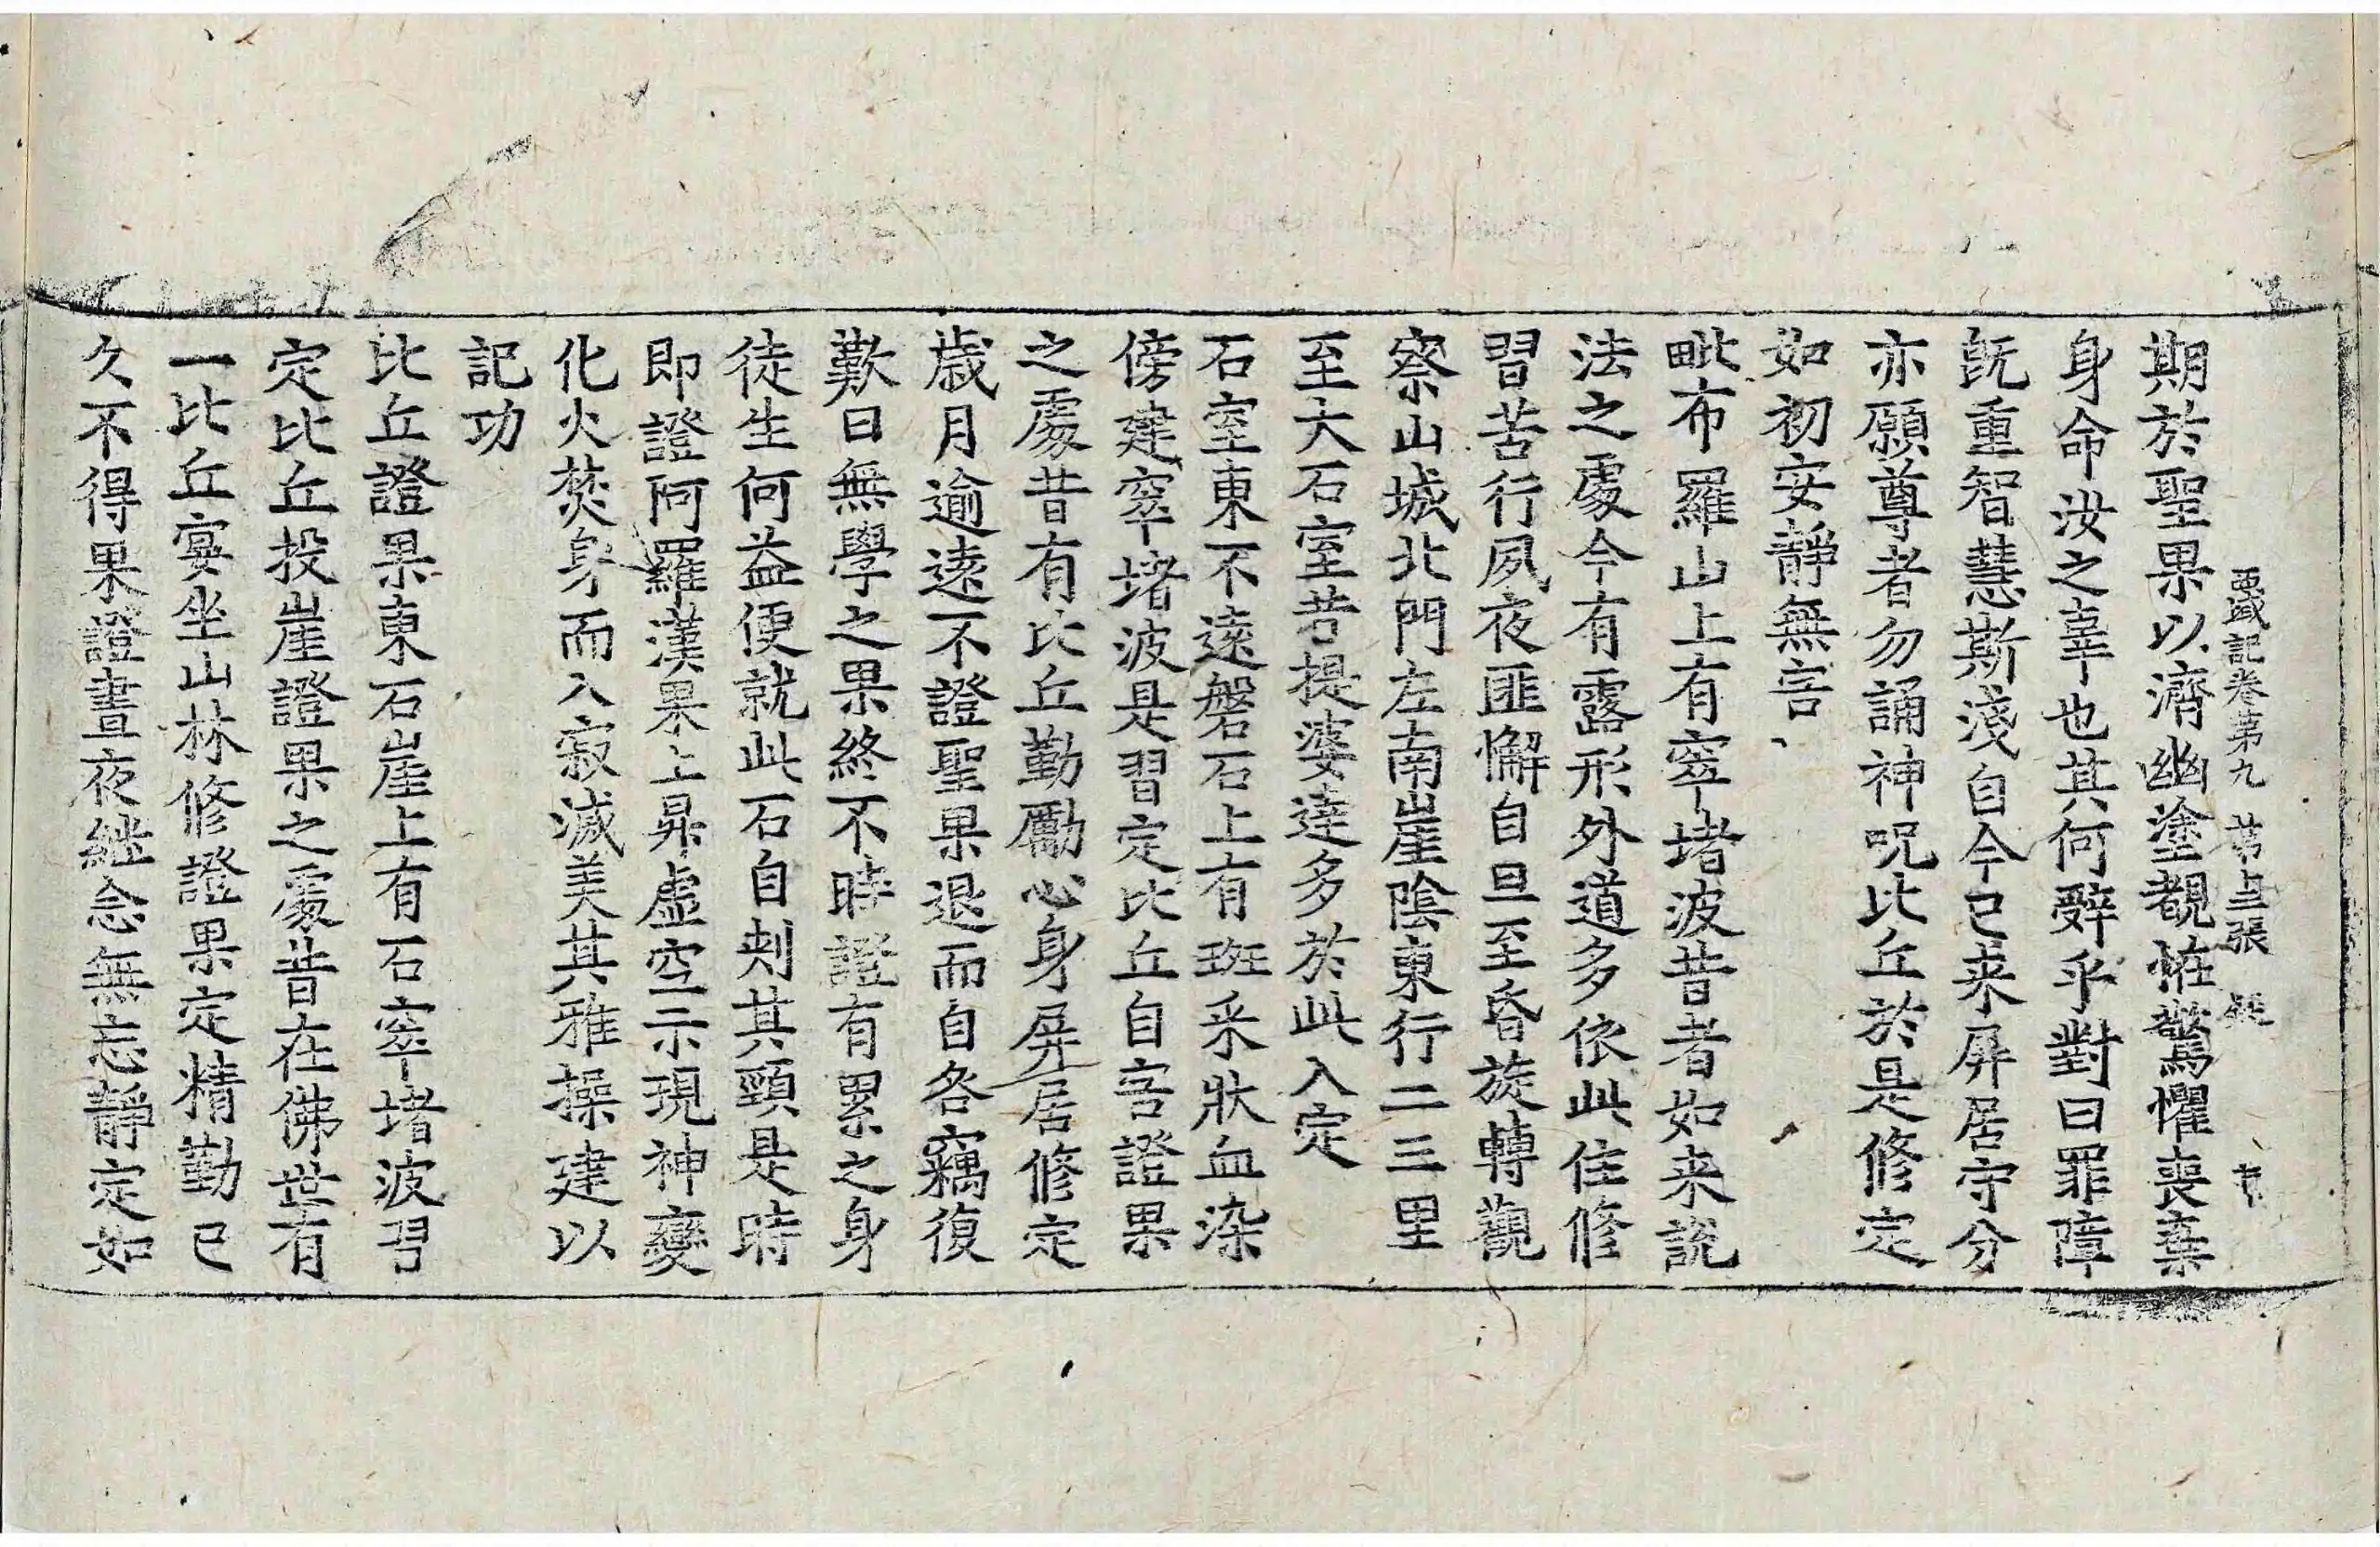 西域記卷第九 第二張 疑
期於聖果以濟幽塗覩恠驚懼喪棄
身命汝之辜也其何辭乎對曰罪障
旣重智慧斯淺自今已来屏居守分
亦願尊者勿誦神呪比丘於是修定
如初安靜無害
毗布羅山上有窣堵波昔者如来說
法之處今有露形外道多依此住修
習苦行夙夜匪懈自旦至昏旋轉觀
察山城北門左南崖陰東行二三里
至大石室昔提婆達多於此入定
石室東不遠磐石上有班采狀血染
傍建窣堵波是習定比丘自害證果
之處昔有比丘勤勵心身屏居修定
歲月逾遠不證聖果退而自咎竊復
歎曰無學之果終不時證有累之身
徒生何益便就此石自刺其頸是時
即證阿羅漢果上昇虛空示現神變
化火焚身而入寂滅美其雅操建以
記功
比丘證果東石崖上有石窣堵波習
定比丘投崖證果之處昔在佛世有
一比丘宴坐山林修證果定精勤已
久不得果證晝夜継念無忘靜定如